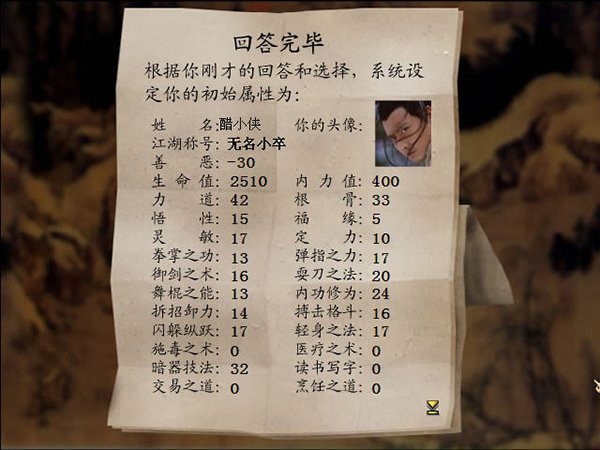 回答完毕
根据你刚才的回答和选择，系统设
定你的初始属性为：
姓名：醋小侠 你的头像：
江湖称号：无名小卒
善恶：-30
生命值：2510 内力值：400
力道：42 根骨：33
悟性：15 福缘：5
灵敏：17 定力：10
拳掌之功：13 弹指之力：17
御剑之术：16 耍刀之法：20
舞棍之能：13 内功修为：24
拆招卸力：14 搏击格斗：16
闪躲纵跃：17 轻身之法：17
施毒之术：0 医疗之术：0
暗器技法：32 读书写字：0
交易之道：0 烹饪之道：0